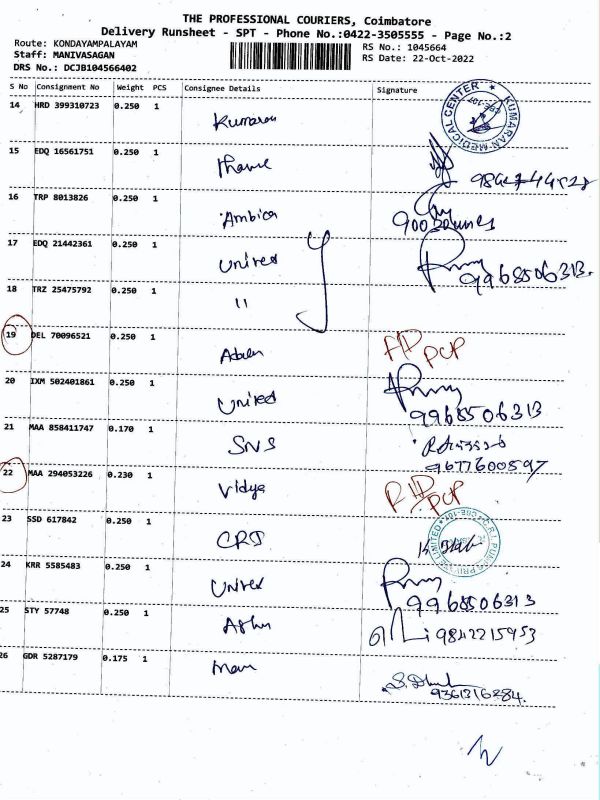 THE PROFESSIONAL COURIERS, Coimbatore
Delivery Runsheet - SPT - Phone No.:0422-3505555 - Page No.:2
Route: KONDAYAMPALAYAM
Staff: MANIVASAGAN
DRS No.: DCJB104566402
RS No.: 1045664
RS Date: 22-Oct-2022
S No Consignment No Weight PCS Consignee Details Signature
14 HRD 399310723 0.250 1 Kumaran
KUMARAN MEDICAL CENTER
15 EDQ 16561751 0.250 1
16 TRP 8013826 0.250 1 Ambica
17 EDQ 21442361 0.250 1 United
9968506313.
18 TRZ 25475792 0.250 1 "
19 DEL 70096521 0.250 1
PCP
20 IXM 502401861 0.250 1 United
9968506313
21 MAA 858411747 0.170 1 SNS
9677600597
22 MAA 294053226 0.230 1 Vidya
PCP
23 SSD 617842 0.250 1 CRI
24 KRR 5585483 0.250 1 United
9968506313
25 STY 57748 0.250 1
9842215953
26 GDR 5287179 0.175 1
9361316284.